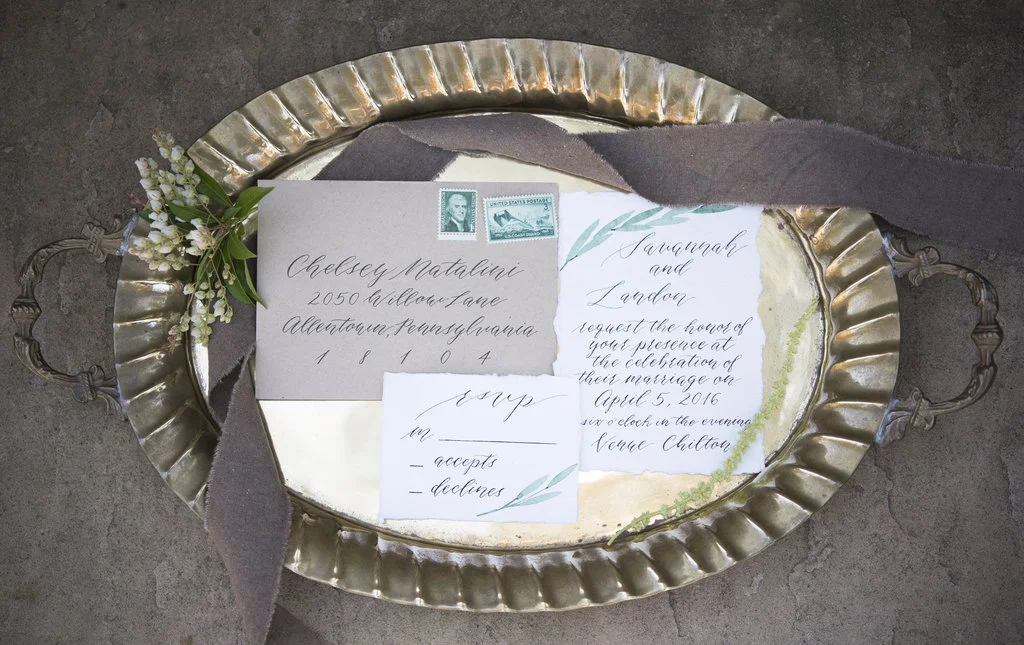 Chelsey Natalini
2050 Willow Lane
Allentown, Pennsylvania
18104
UNITED STATES POSTAGE
3¢
U.S. COAST GUARD
Savannah
and
Landon
request the honor of
your presence at
the celebration of
their marriage on
April 5, 2016
six o'clock in the evening
Venue Chilton
rsvp
m
accepts
declines